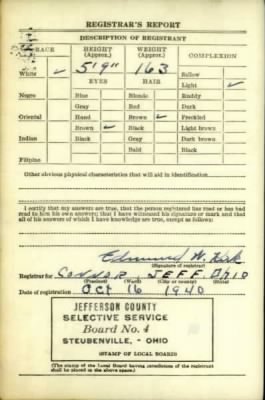 REGISTRAR'S REPORT
DESCRIPTION OF REGISTRANT
RACE HEIGHT (Approx.) WEIGHT (Approx.) COMPLEXION
White ✓ 5'9" 163 Sallow
EYES HAIR Light ✓
Negro Blue Blonde Ruddy
Gray Red Dark
Oriental Hazel Brown ✓ Freckled
Brown ✓ Black Light brown
Indian Black Gray Dark brown
Bald Black
Filipino
Other obvious physical characteristics that will aid in identification
I certify that my answers are true; that the person registered has read or has had
read to him his own answers; that I have witnessed his signature or mark and that
all of his answers of which I have knowledge are true, except as follows:
Edmund W. Kirk
(Signature of registrar)
Registrar for JEFF. Ohio
(Precinct) (Ward) (City or county) (State)
Date of registration Oct 16 1940
JEFFERSON COUNTY
SELECTIVE SERVICE
Board No. 4
STEUBENVILLE, - OHIO
(STAMP OF LOCAL BOARD)
(The stamp of the Local Board having jurisdiction of the registrant
shall be placed in the above space.)